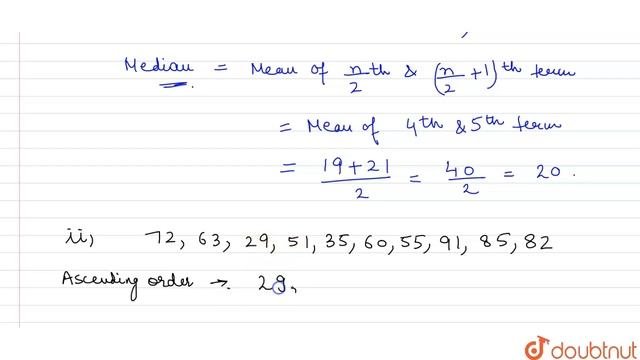 Median = Mean of n/2 th & (n/2 + 1)th term
= Mean of 4th & 5th term
= 19+21/2 = 40/2 = 20.
ii, 72, 63, 29, 51, 35, 60, 55, 91, 85, 82
Ascending order →. 29,
doubtnut